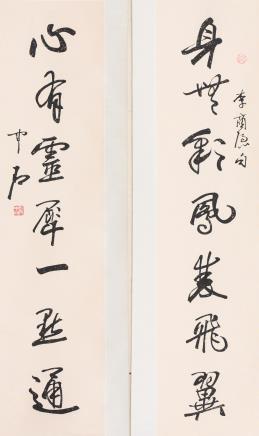 李商隱句
身無彩鳳雙飛翼
心有靈犀一點通
中石